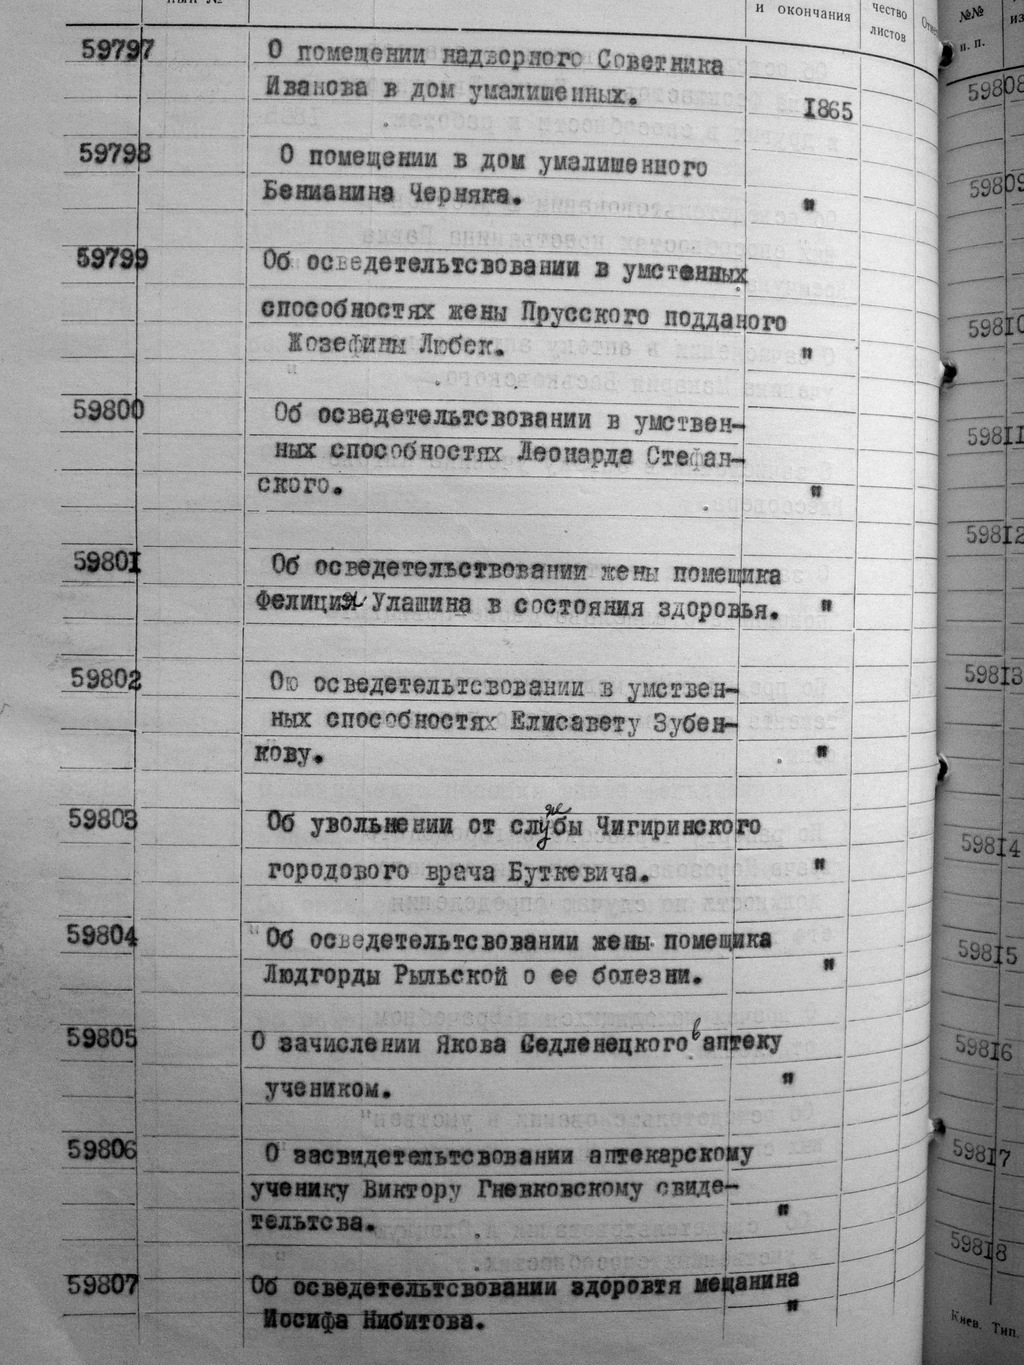 и окончания
чество
листов
59797 О помещении надворного Советника
Иванова в дом умалишенных. 1865
59798 О помещении в дом умалишенного
Бенианина Черняка. "
59799 Об осведетельтсвовании в умстенных
способностях жены Прусского подданого
Жозефины Любек. "
59800 Об осведетельтсвовании в умствен-
ных способностях Леонарда Стефан-
ского. "
59801 Об осведетельствовании жены помещика
Фелиция Улашина в состояния здоровья. "
59802 Ою осведетельтсвовании в умствен-
ных способностях Елисавету Зубен-
кову. "
59803 Об увольнении от службы Чигиринского
городового врача Буткевича. "
59804 Об осведетельтсвовании жены помещика
Людгорды Рыльской о ее болезни. "
59805 О зачислении Якова Седленецкого в аптеку
учеником. "
59806 О засвидетельтсвовании аптекарскому
ученику Виктору Гневковскому свиде-
тельтсва. "
59807 Об осведетельтсвовании здоровтя мещанина
Иосифа Нибитова. "
№№
п. п.
59808
59809
59810
59811
59812
59813
59814
59815
59816
59817
59818
Киев. Тип.